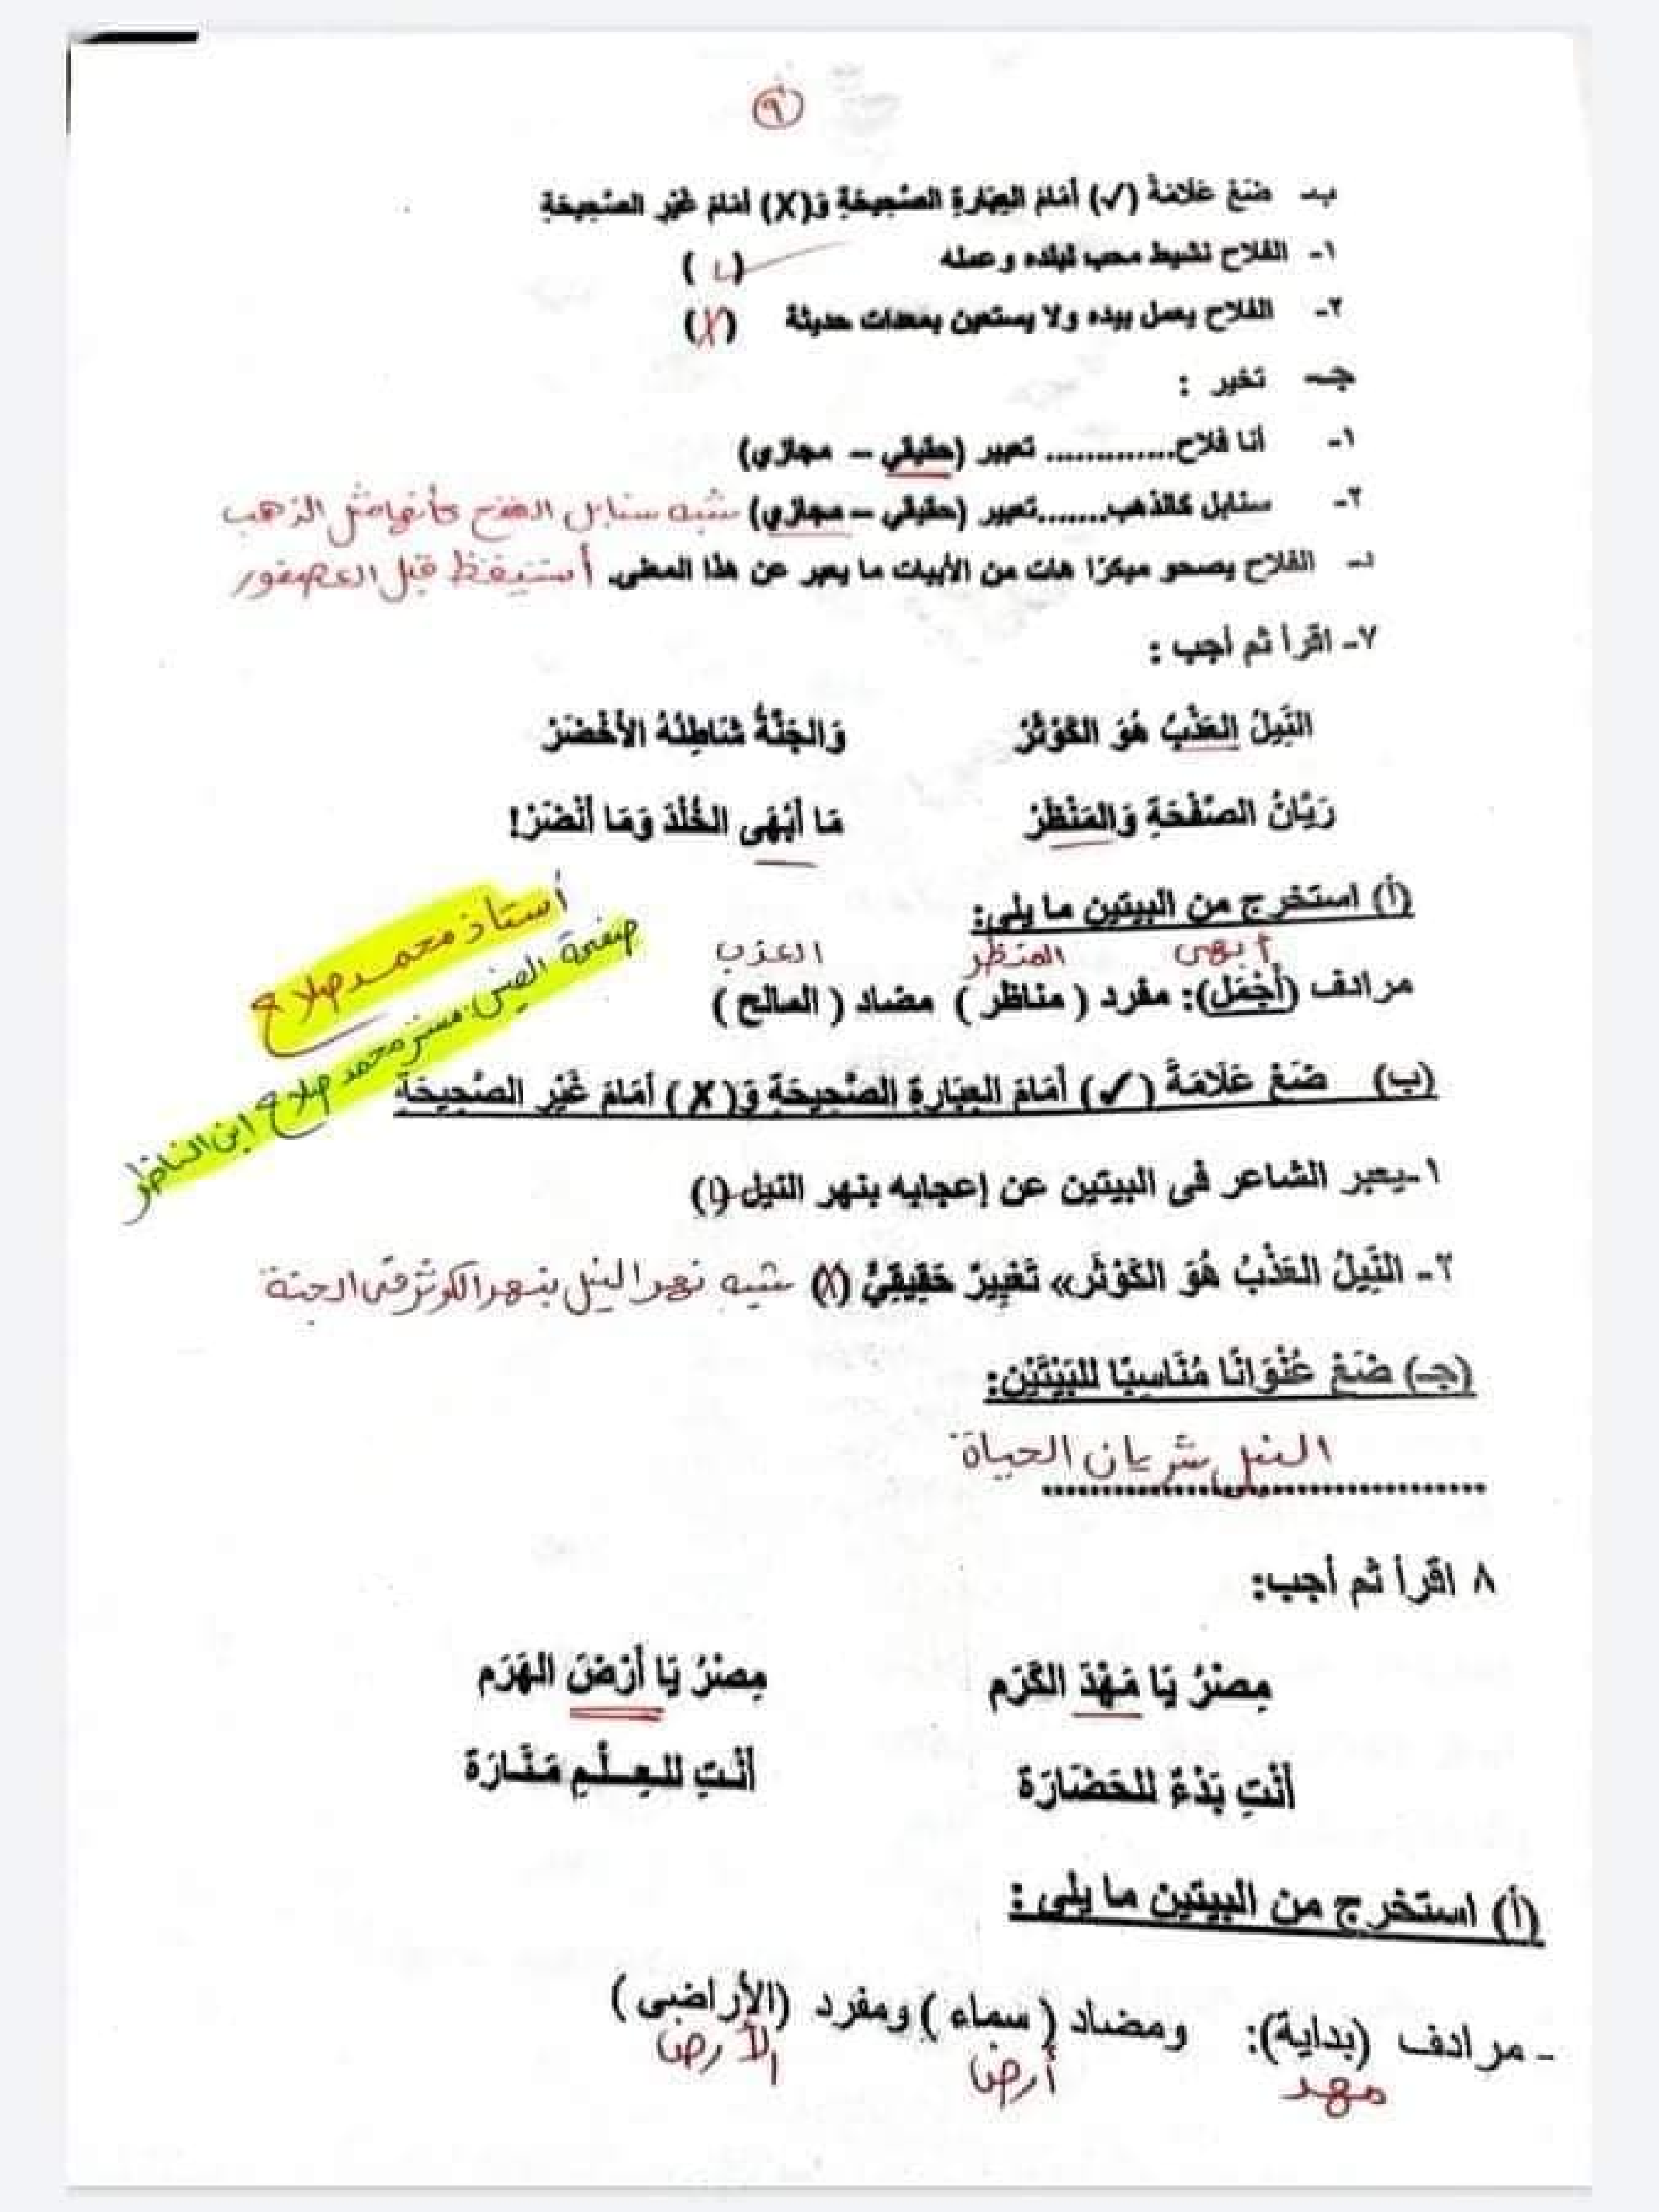 ٩
ب- ضَعْ عَلَامَةَ (✓) أَمَامَ العِبَارَةِ الصَّحِيحَةِ وَ(X) أَمَامَ غَيْرِ الصَّحِيحَةِ
١- الفلاح نشيط محب لبلده وعمله (✓)
٢- الفلاح يعمل بيده ولا يستعين بمعدات حديثة (X)
جـ- تخير :
١- أنا فلاح............. تعبير (حقيقي – مجازي)
٢- سنابل كالذهب.......تعبير (حقيقي – مجازي) شبه سنابل القمح كأنها مثل الذهب
د- الفلاح يصحو مبكرًا هات من الأبيات ما يعبر عن هذا المعنى. أستيقظ قبل العصفور
٧- اقرأ ثم أجب :
النِّيلُ العَذْبُ هُوَ الكَوْثَرْ وَالجَنَّةُ شَاطِئُهُ الأَخْضَرْ
رَيَّانُ الصَّفْحَةِ وَالمَنْظَرْ مَا أَبْهَى الخُلْدَ وَمَا أَنْضَرْ!
(أ) استخرج من البيتين ما يلى:
أبهى المنظر العذب
مرادف (أَجْمَل): مفرد ( مناظر ) مضاد ( المالح )
أستاذ محمد صلاح
صفحة الفيس: مستر محمد صلاح ابن الناظر
(ب) ضَعْ عَلَامَةَ ( ✓ ) أَمَامَ العِبَارَةِ الصَّحِيحَةِ وَ( X ) أَمَامَ غَيْرِ الصَّحِيحَةِ
١-يعبر الشاعر فى البيتين عن إعجابه بنهر النيل (✓)
٢- النِّيلُ العَذْبُ هُوَ الكَوْثَر» تَعْبِيرٌ حَقِيقِيٌّ (X) شبه نهر النيل بنهر الكوثر فى الجنة
(جـ) ضَعْ عُنْوَانًا مُنَاسِبًا للبَيْتَيْنِ:
النيل شريان الحياة
٨ اقرأ ثم أجب:
مِصْرُ يَا مَهْدَ الكَرَم مِصْرُ يَا أَرْضَ الهَرَم
أَنْتِ بَدْءٌ للحَضَارَة أَنْتِ للعِلْمِ مَنَارَة
(أ) استخرج من البيتين ما يلى :
- مرادف (بداية): ومضاد ( سماء ) ومفرد (الأراضى )
مهد أرض الأرض